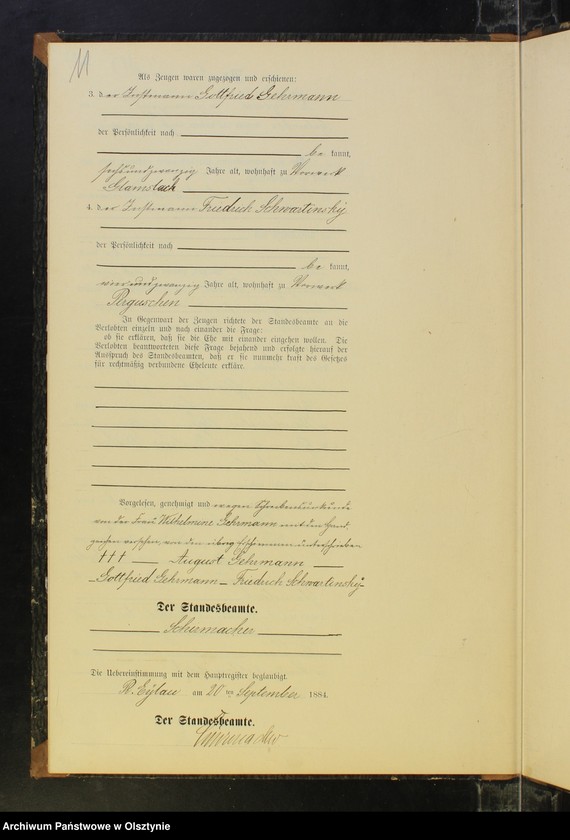 11
Als Zeugen waren zugezogen und erschienen:
3. der Instmann Gottfried Gehrmann
der Persönlichkeit nach
be kannt,
sechsundzwanzig Jahre alt, wohnhaft zu Vorwerk
Glamslack
4. der Instmann Friedrich Schwartinsky
der Persönlichkeit nach
be kannt,
vierundzwanzig Jahre alt, wohnhaft zu Vorwerk
Perguschen
In Gegenwart der Zeugen richtete der Standesbeamte an die
Verlobten einzeln und nach einander die Frage:
ob sie erklären, daß sie die Ehe mit einander eingehen wollen. Die
Verlobten beantworteten diese Frage bejahend und erfolgte hierauf der
Ausspruch des Standesbeamten, daß er sie nunmehr kraft des Gesetzes
für rechtmäßig verbundene Eheleute erkläre.
Vorgelesen, genehmigt und wegen Schreibensunkunde
von der Frau Wilhelmine Gehrmann mit dem Hand-
zeichen versehen, von den übrig Erschienenen unterschrieben
+++ August Gehrmann
Gottfried Gehrmann Friedrich Schwartinsky
Der Standesbeamte.
Schumacher
Die Uebereinstimmung mit dem Hauptregister beglaubigt.
R. Eylau am 20 ten September 1884.
Der Standesbeamte.
Schumacher
Archiwum Państwowe w Olsztynie